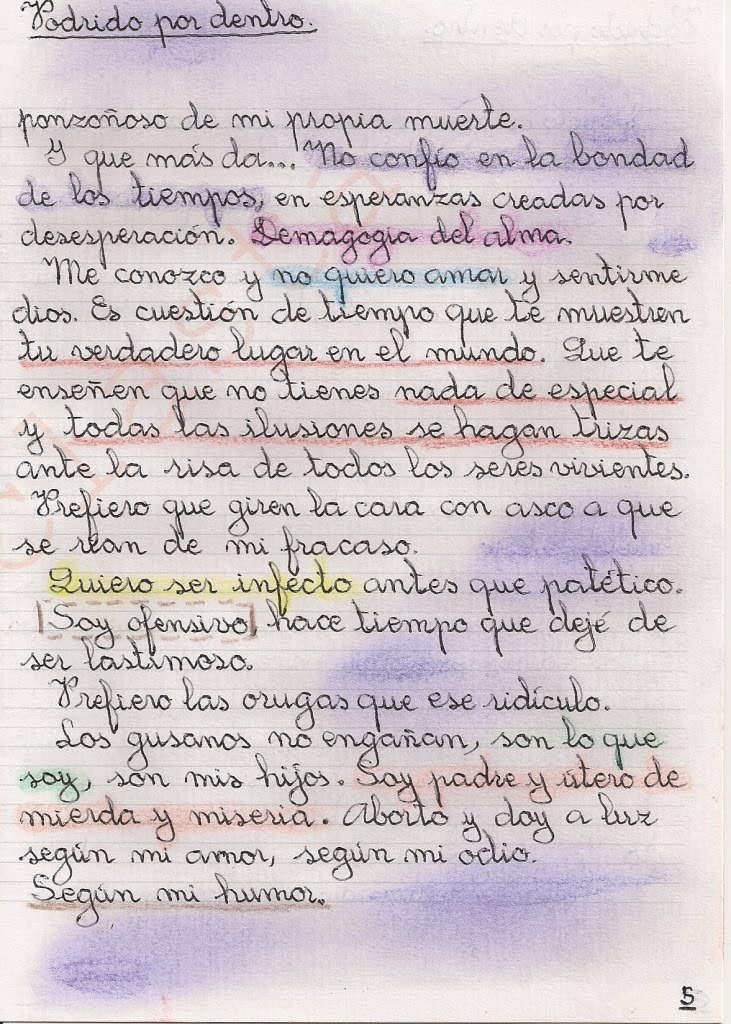 Podrido por dentro.
ponzoñoso de mi propia muerte.
Y que más da... No confío en la bondad
de los tiempos, en esperanzas creadas por
desesperación. Demagogia del alma.
Me conozco y no quiero amar y sentirme
dios. Es cuestión de tiempo que te muestren
tu verdadero lugar en el mundo. Que te
enseñen que no tienes nada de especial
y todas las ilusiones se hagan trizas
ante la risa de todos los seres vivientes.
Prefiero que giren la cara con asco a que
se rían de mi fracaso.
Quiero ser infecto antes que patético.
Soy ofensivo, hace tiempo que dejé de
ser lastimoso.
Prefiero las orugas que ese ridículo.
Los gusanos no engañan, son lo que
soy, son mis hijos. Soy padre y útero de
mierda y miseria. Aborto y doy a luz
según mi amor, según mi odio.
Según mi humor.
5